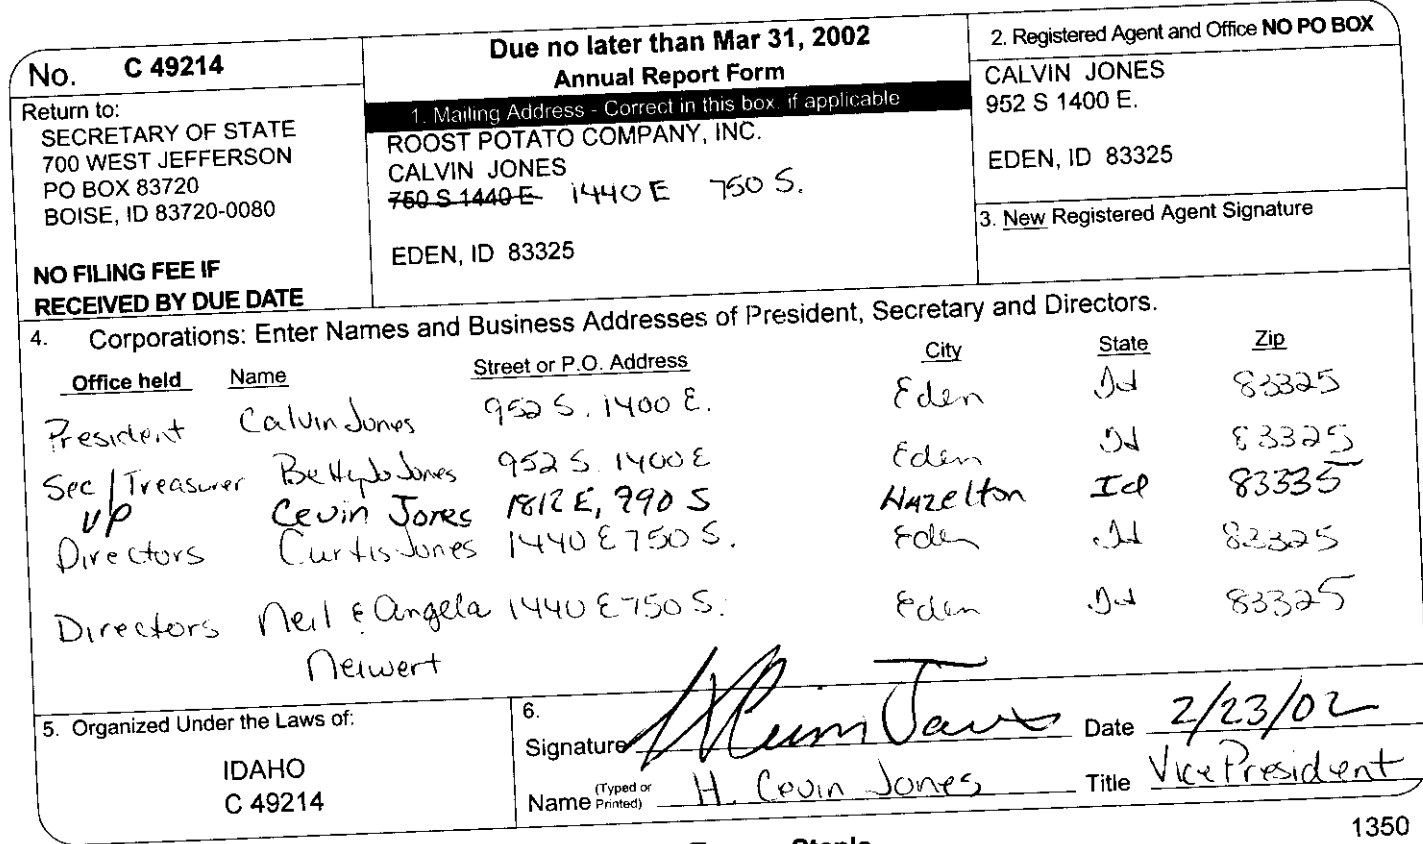 No. C 49214
Return to:
SECRETARY OF STATE
700 WEST JEFFERSON
PO BOX 83720
BOISE, ID 83720-0080
NO FILING FEE IF
RECEIVED BY DUE DATE
Due no later than Mar 31, 2002
Annual Report Form
1. Mailing Address - Correct in this box, if applicable
ROOST POTATO COMPANY, INC.
CALVIN JONES
750 S 1440 E 1440 E 750 S.
EDEN, ID 83325
2. Registered Agent and Office NO PO BOX
CALVIN JONES
952 S 1400 E.
EDEN, ID 83325
3. New Registered Agent Signature
4. Corporations: Enter Names and Business Addresses of President, Secretary and Directors.
Office held Name Street or P.O. Address City State Zip
President Calvin Jones 952 S. 1400 E. Eden Id 83325
Sec/Treasurer Betty Jo Jones 952 S. 1400 E Eden Id 83325
VP Cevin Jones 1812 E, 990 S Hazelton Id 83335
Directors Curtis Jones 1440 E 750 S. Eden Id 83325
Directors Neil & Angela 1440 E 750 S. Eden Id 83325
Neiwert
5. Organized Under the Laws of:
IDAHO
C 49214
6.
Signature H Cevin Jones Date 2/23/02
Name (Typed or Printed) H. Cevin Jones Title Vice President
1350